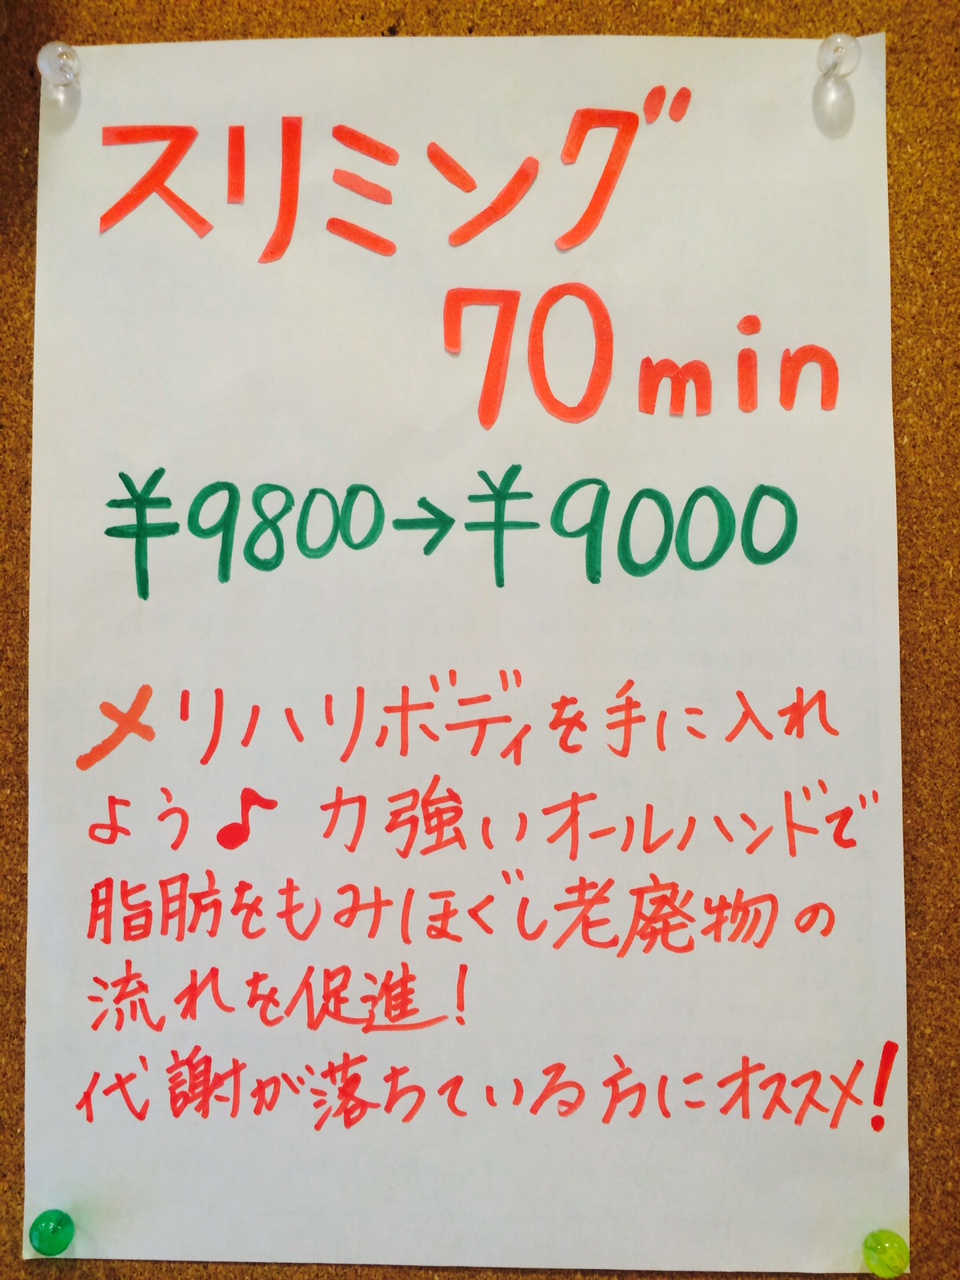 スリミング
70min
¥9800→¥9000
メリハリボディを手に入れ
よう♪ 力強いオールハンドで
脂肪をもみほぐし老廃物の
流れを促進!
代謝が落ちている方にオススメ!